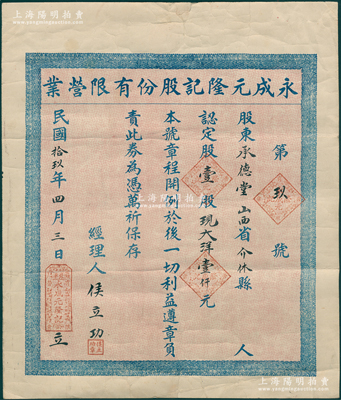 上海陽明拍賣
業營限有份股記隆元成永
第玖號
股東承德堂山西省介休縣人
認定股壹股現大洋壹仟元
本號章程開列於後一切利益遵章負
責此券為憑萬祈保存
經理人 侯立功
民國拾玖年四月三日 立
上海陽明拍賣